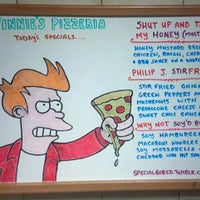 INNIE'S PIZZERIA
TODAY'S SPECIALS....
SHUT UP AND TA
MY HONEY (MUST
HONEY MUSTARD BREA
CHICKEN, BACON, CHED
+ BBQ SAUCE ON A
PHILIP J. STIRFR
STIR FRIED ONIO
GREEN PEPPERS AN
MUSHROOMS WITH
PROVOLONE CHEESE
SWEET CHILI SAUCE
WHY NOT SOY'D B
SOY HAMBURGER
MACARONI NOODLES
SOY MOZZARELLA
CHEDDAR
SPECIALBORED.TUMBLR.C